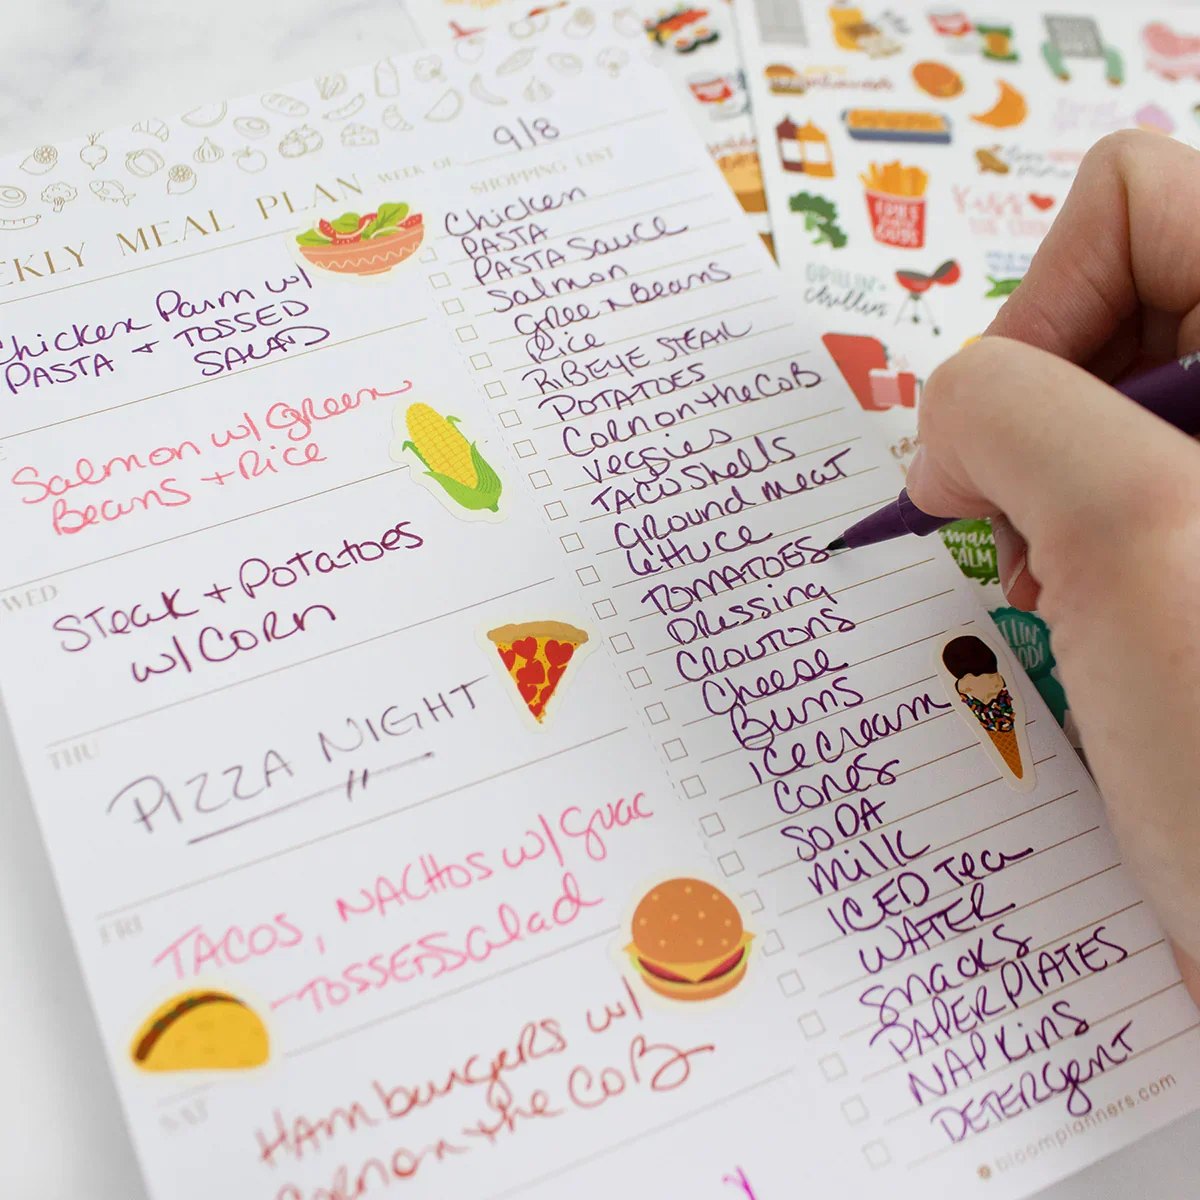 WEEKLY MEAL PLAN
WEEK OF
9/8
Chicken Parm w/
PASTA + TOSSED
SALAD
Salmon w/ Green
Beans + Rice
WED
STeak + Potatoes
w/ CORN
THU
PIZZA NIGHT
FRI
TACOS, NACHOS w/ guac
- TOSSED Salad
SAT
Hamburgers w/
Corn on the COB
SHOPPING LIST
Chicken
PASTA
PASTA Sauce
Salmon
Green Beans
Rice
RIBEYE STEAK
POTATOES
Corn on the COB
veggies
TACO Shells
Ground meat
Lettuce
TOMATOES
Dressing
CROUTONS
Cheese
Buns
Ice cream
Cones
SODA
milk
ICED Tea
WATER
snacks
PAPER PLATES
NAPKINS
DETERgenT
bloomplanners.com
GRILLIN'
chillin
FRIES
GUYS
Kiss
THE COOK
CALM